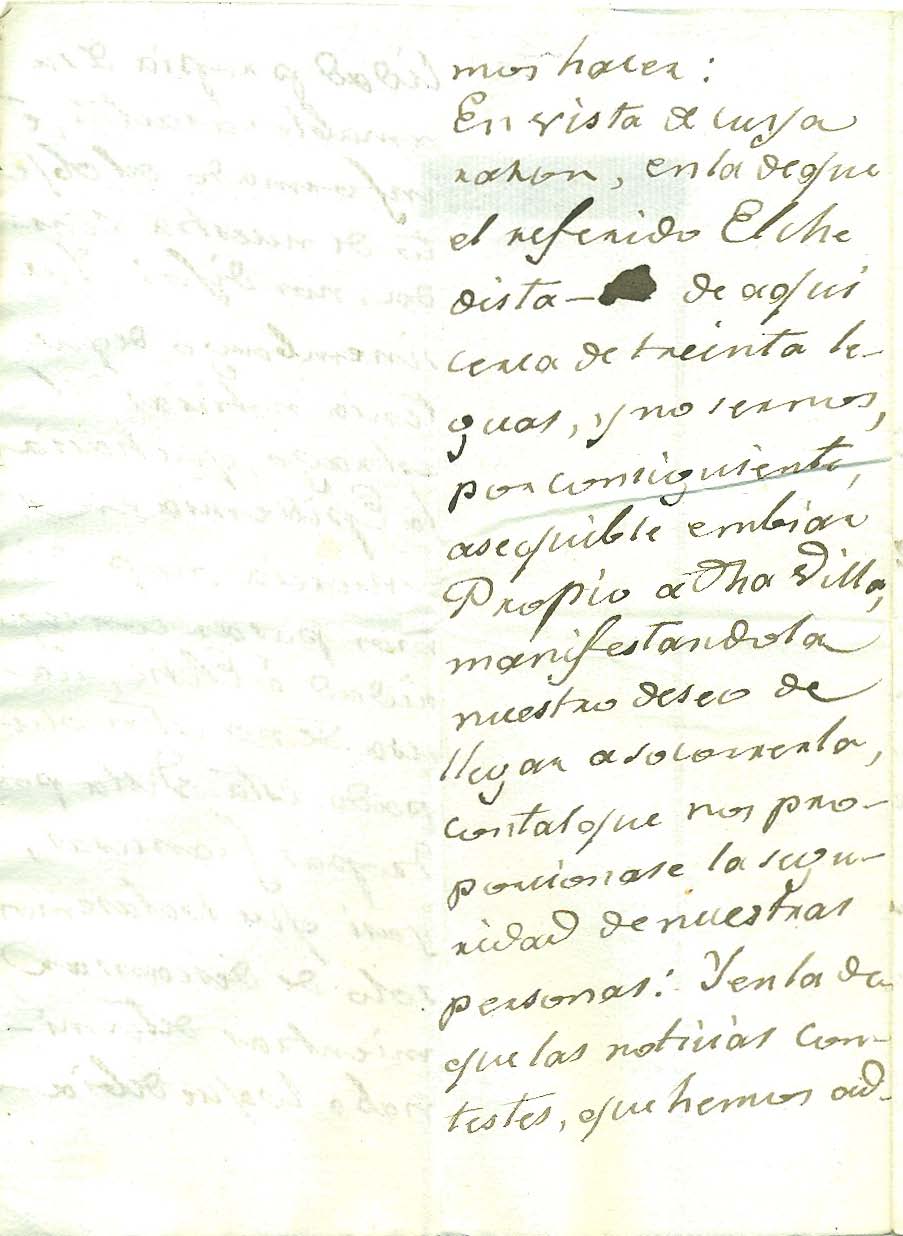 mos hacer:
En vista de cuya
razon, en la de que
el referido Elche
dista- de aqui
cerca de treinta le-
guas, y no sernos,
por consiguiente,
asequible embiar
Propio a dha Villa,
manifestandola
nuestro deseo de
llegar a socorrerla,
con tal que nos pro-
porcionase la segu-
ridad de nuestras
personas: Y en la de
que las noticias con-
testes, que hemos ad-